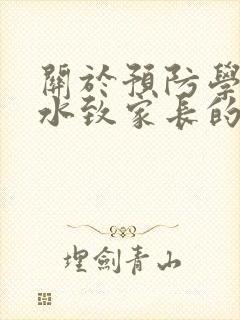 關於預防學
水致家長的
埋劍青山